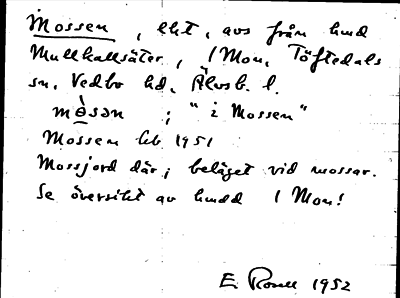 Mossen, lht, avs från hmd
Mullkallsäter, 1 Mon, Töftedals
sn, Vedbo hd, Älvsb. l.
mòsən ; "i Mossen"
Mossen lib 1951
Mossjord där; beläget vid mossar.
Se översikt av hmdd 1 Mon!
E. Rosell 1952